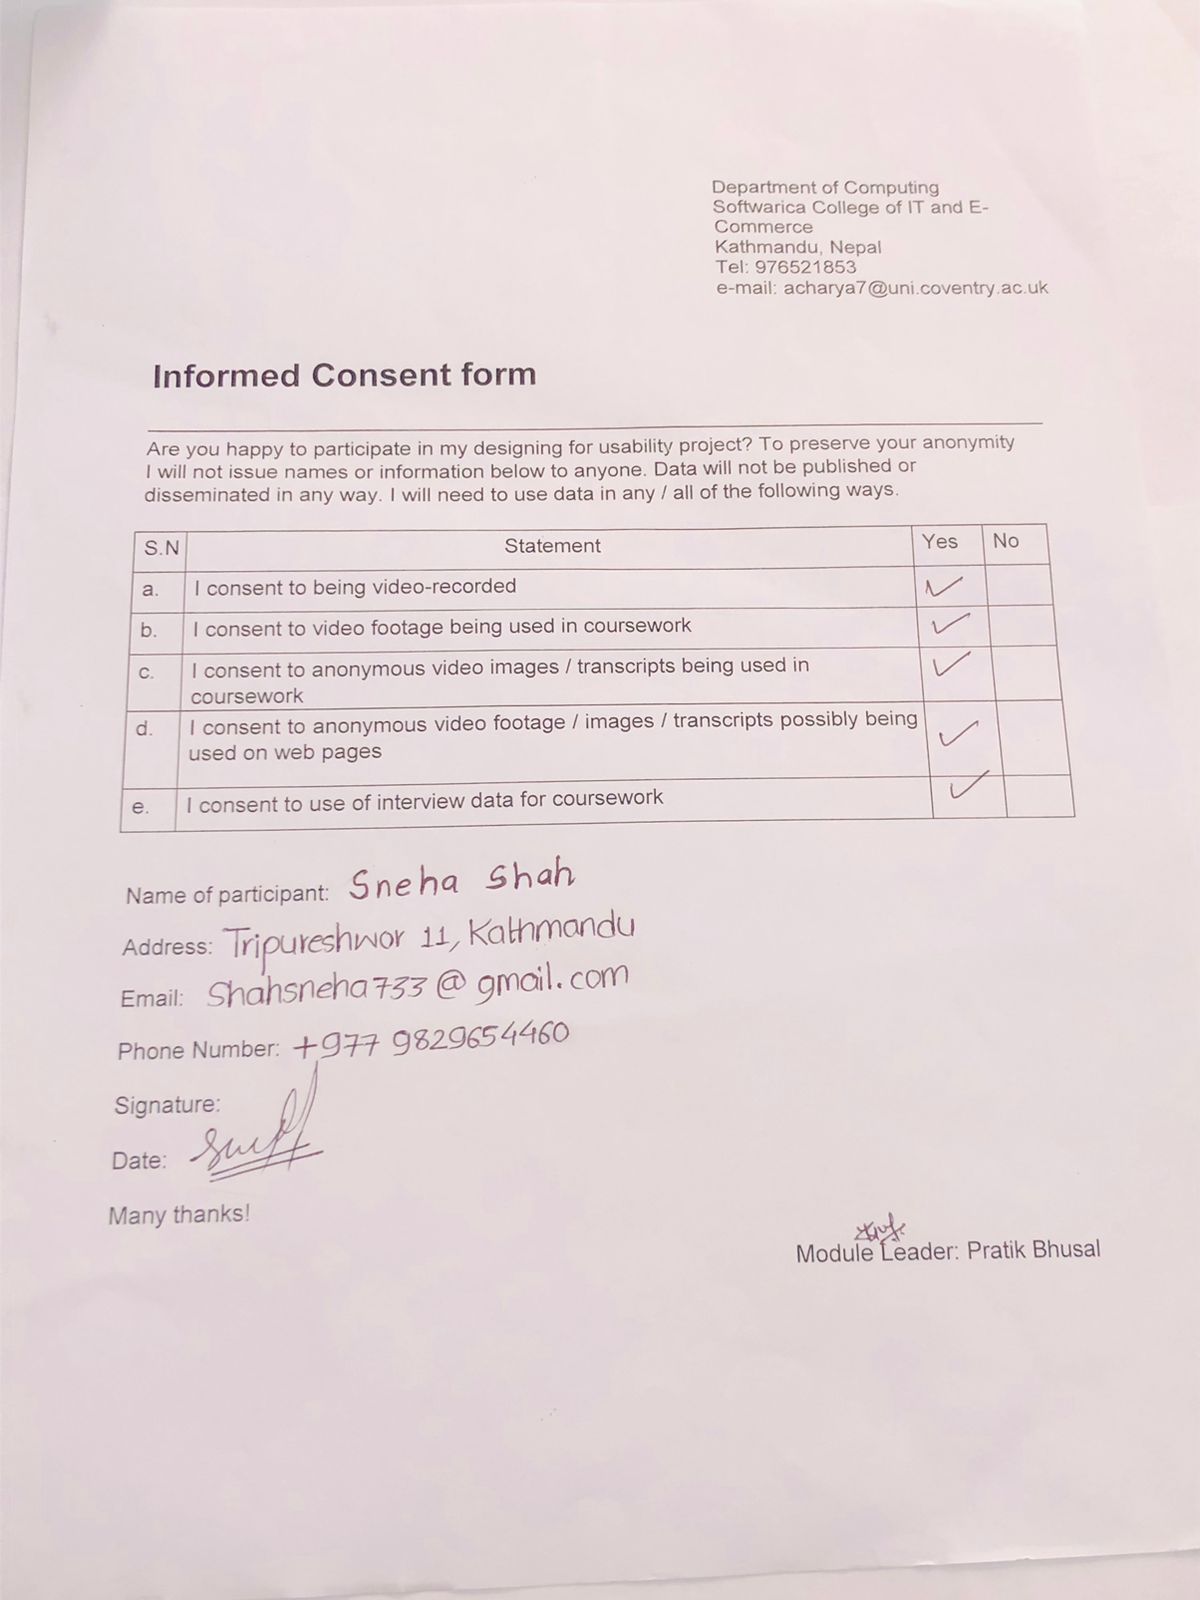 Department of Computing
Softwarica College of IT and E-
Commerce
Kathmandu, Nepal
Tel: 976521853
e-mail: acharya7@uni.coventry.ac.uk
Informed Consent form
Are you happy to participate in my designing for usability project? To preserve your anonymity
I will not issue names or information below to anyone. Data will not be published or
disseminated in any way. I will need to use data in any / all of the following ways.
S.N Statement Yes No
a. I consent to being video-recorded ✓
b. I consent to video footage being used in coursework ✓
c. I consent to anonymous video images / transcripts being used in
coursework ✓
d. I consent to anonymous video footage / images / transcripts possibly being
used on web pages ✓
e. I consent to use of interview data for coursework ✓
Name of participant: Sneha Shah
Address: Tripureshwor 11, Kathmandu
Email: Shahsneha733@gmail.com
Phone Number: +977 9829654460
Signature:
Date:
Many thanks!
Module Leader: Pratik Bhusal